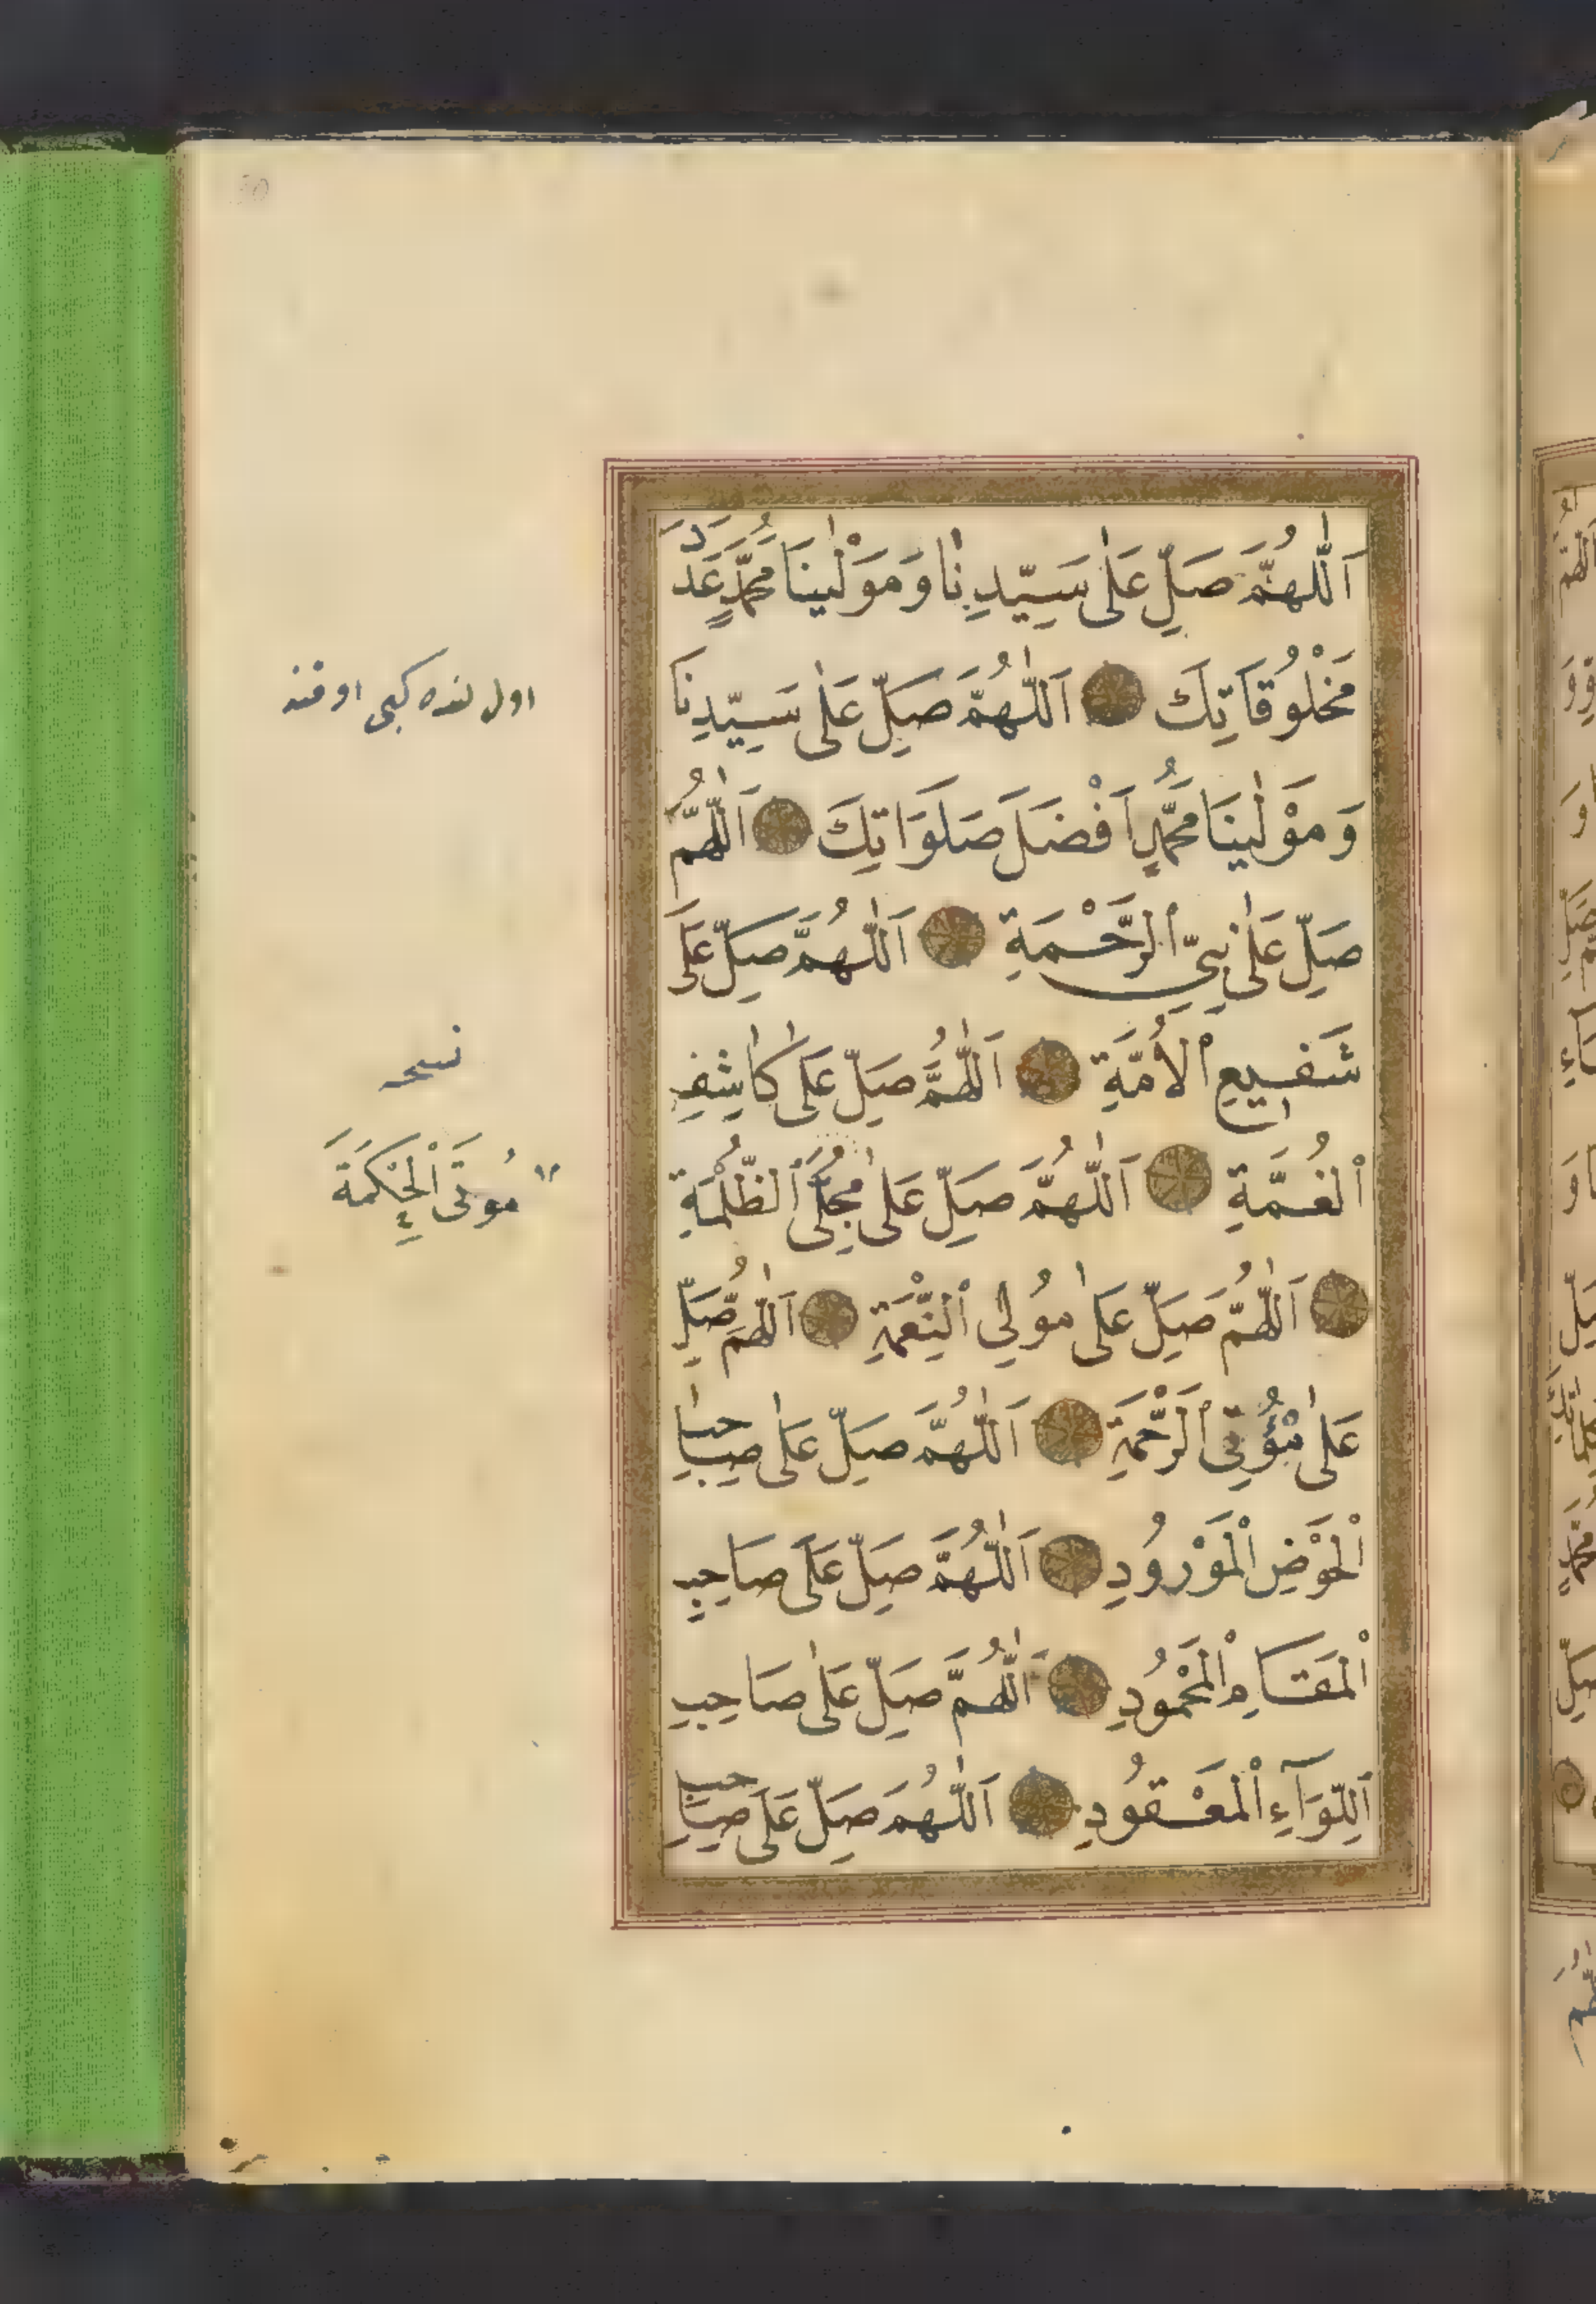 اَللّٰهُمَّ صَلِّ عَلٰى سَيِّدِنَا وَمَوْلٰينَا مُحَمَّدٍ عَدَدَ
مَخْلُوقَاتِكَ اَللّٰهُمَّ صَلِّ عَلٰى سَيِّدِنَا
وَمَوْلٰينَا مُحَمَّدٍ اَفْضَلَ صَلَوَاتِكَ اَللّٰهُمَّ
صَلِّ عَلٰى نَبِيِّ الرَّحْمَةِ اَللّٰهُمَّ صَلِّ عَلٰى
شَفِيعِ الْاُمَّةِ اَللّٰهُمَّ صَلِّ عَلٰى كَاشِفِ
الْغُمَّةِ اَللّٰهُمَّ صَلِّ عَلٰى مُجَلِّى الظُّلْمَةِ
اَللّٰهُمَّ صَلِّ عَلٰى مُولِى النِّعْمَةِ اَللّٰهُمَّ صَلِّ
عَلٰى مُؤْتِى الرَّحْمَةِ اَللّٰهُمَّ صَلِّ عَلٰى صَاحِبِ
الْحَوْضِ الْمَوْرُودِ اَللّٰهُمَّ صَلِّ عَلٰى صَاحِبِ
الْمَقَامِ الْمَحْمُودِ اَللّٰهُمَّ صَلِّ عَلٰى صَاحِبِ
اللِّوَآءِ الْمَعْقُودِ اَللّٰهُمَّ صَلِّ عَلٰى صَاحِبِ
اول كبى
نسخه
مُوتَى الْحِكْمَةَ